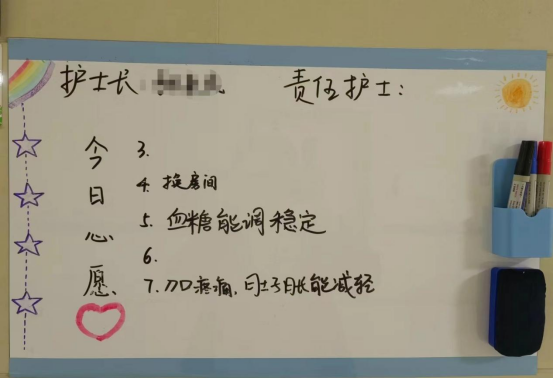 护士长
责任护士：
今日心愿
3.
4. 换房间
5. 血糖能调稳定
6.
7. 刀口疼痛，肚子胀能减轻